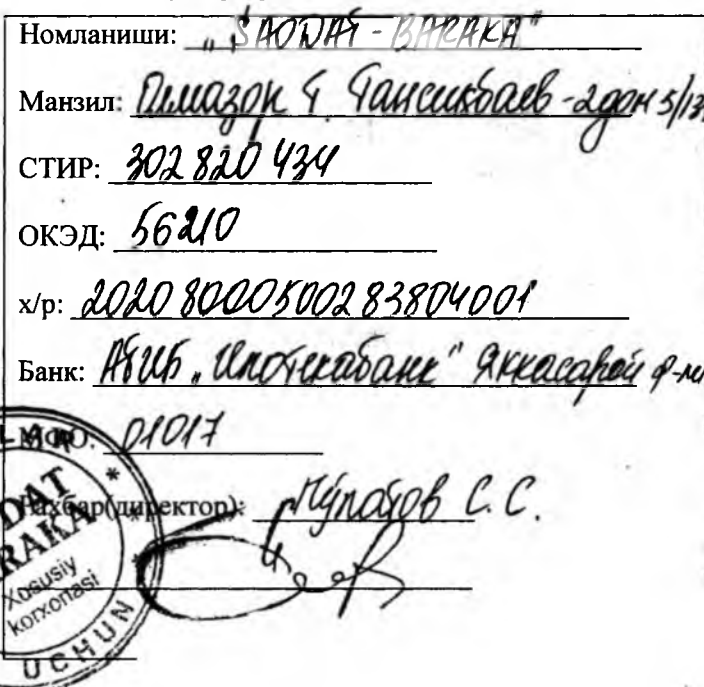 Номланиши: „SAODAT - BARAKA"
Манзил: Олмазор Т. Тансикбаев - 2 дом 5/13
СТИР: 302 820 434
ОКЭД: 56210
х/р: 20208000500283804001
Банк: АТИБ „Ипотекабанк" Яккасарой ф-ли
МФО: 01017
Рахбар(директор): С. С.
DAT
RAKA
Xususiy
korxonasi
UCHUN